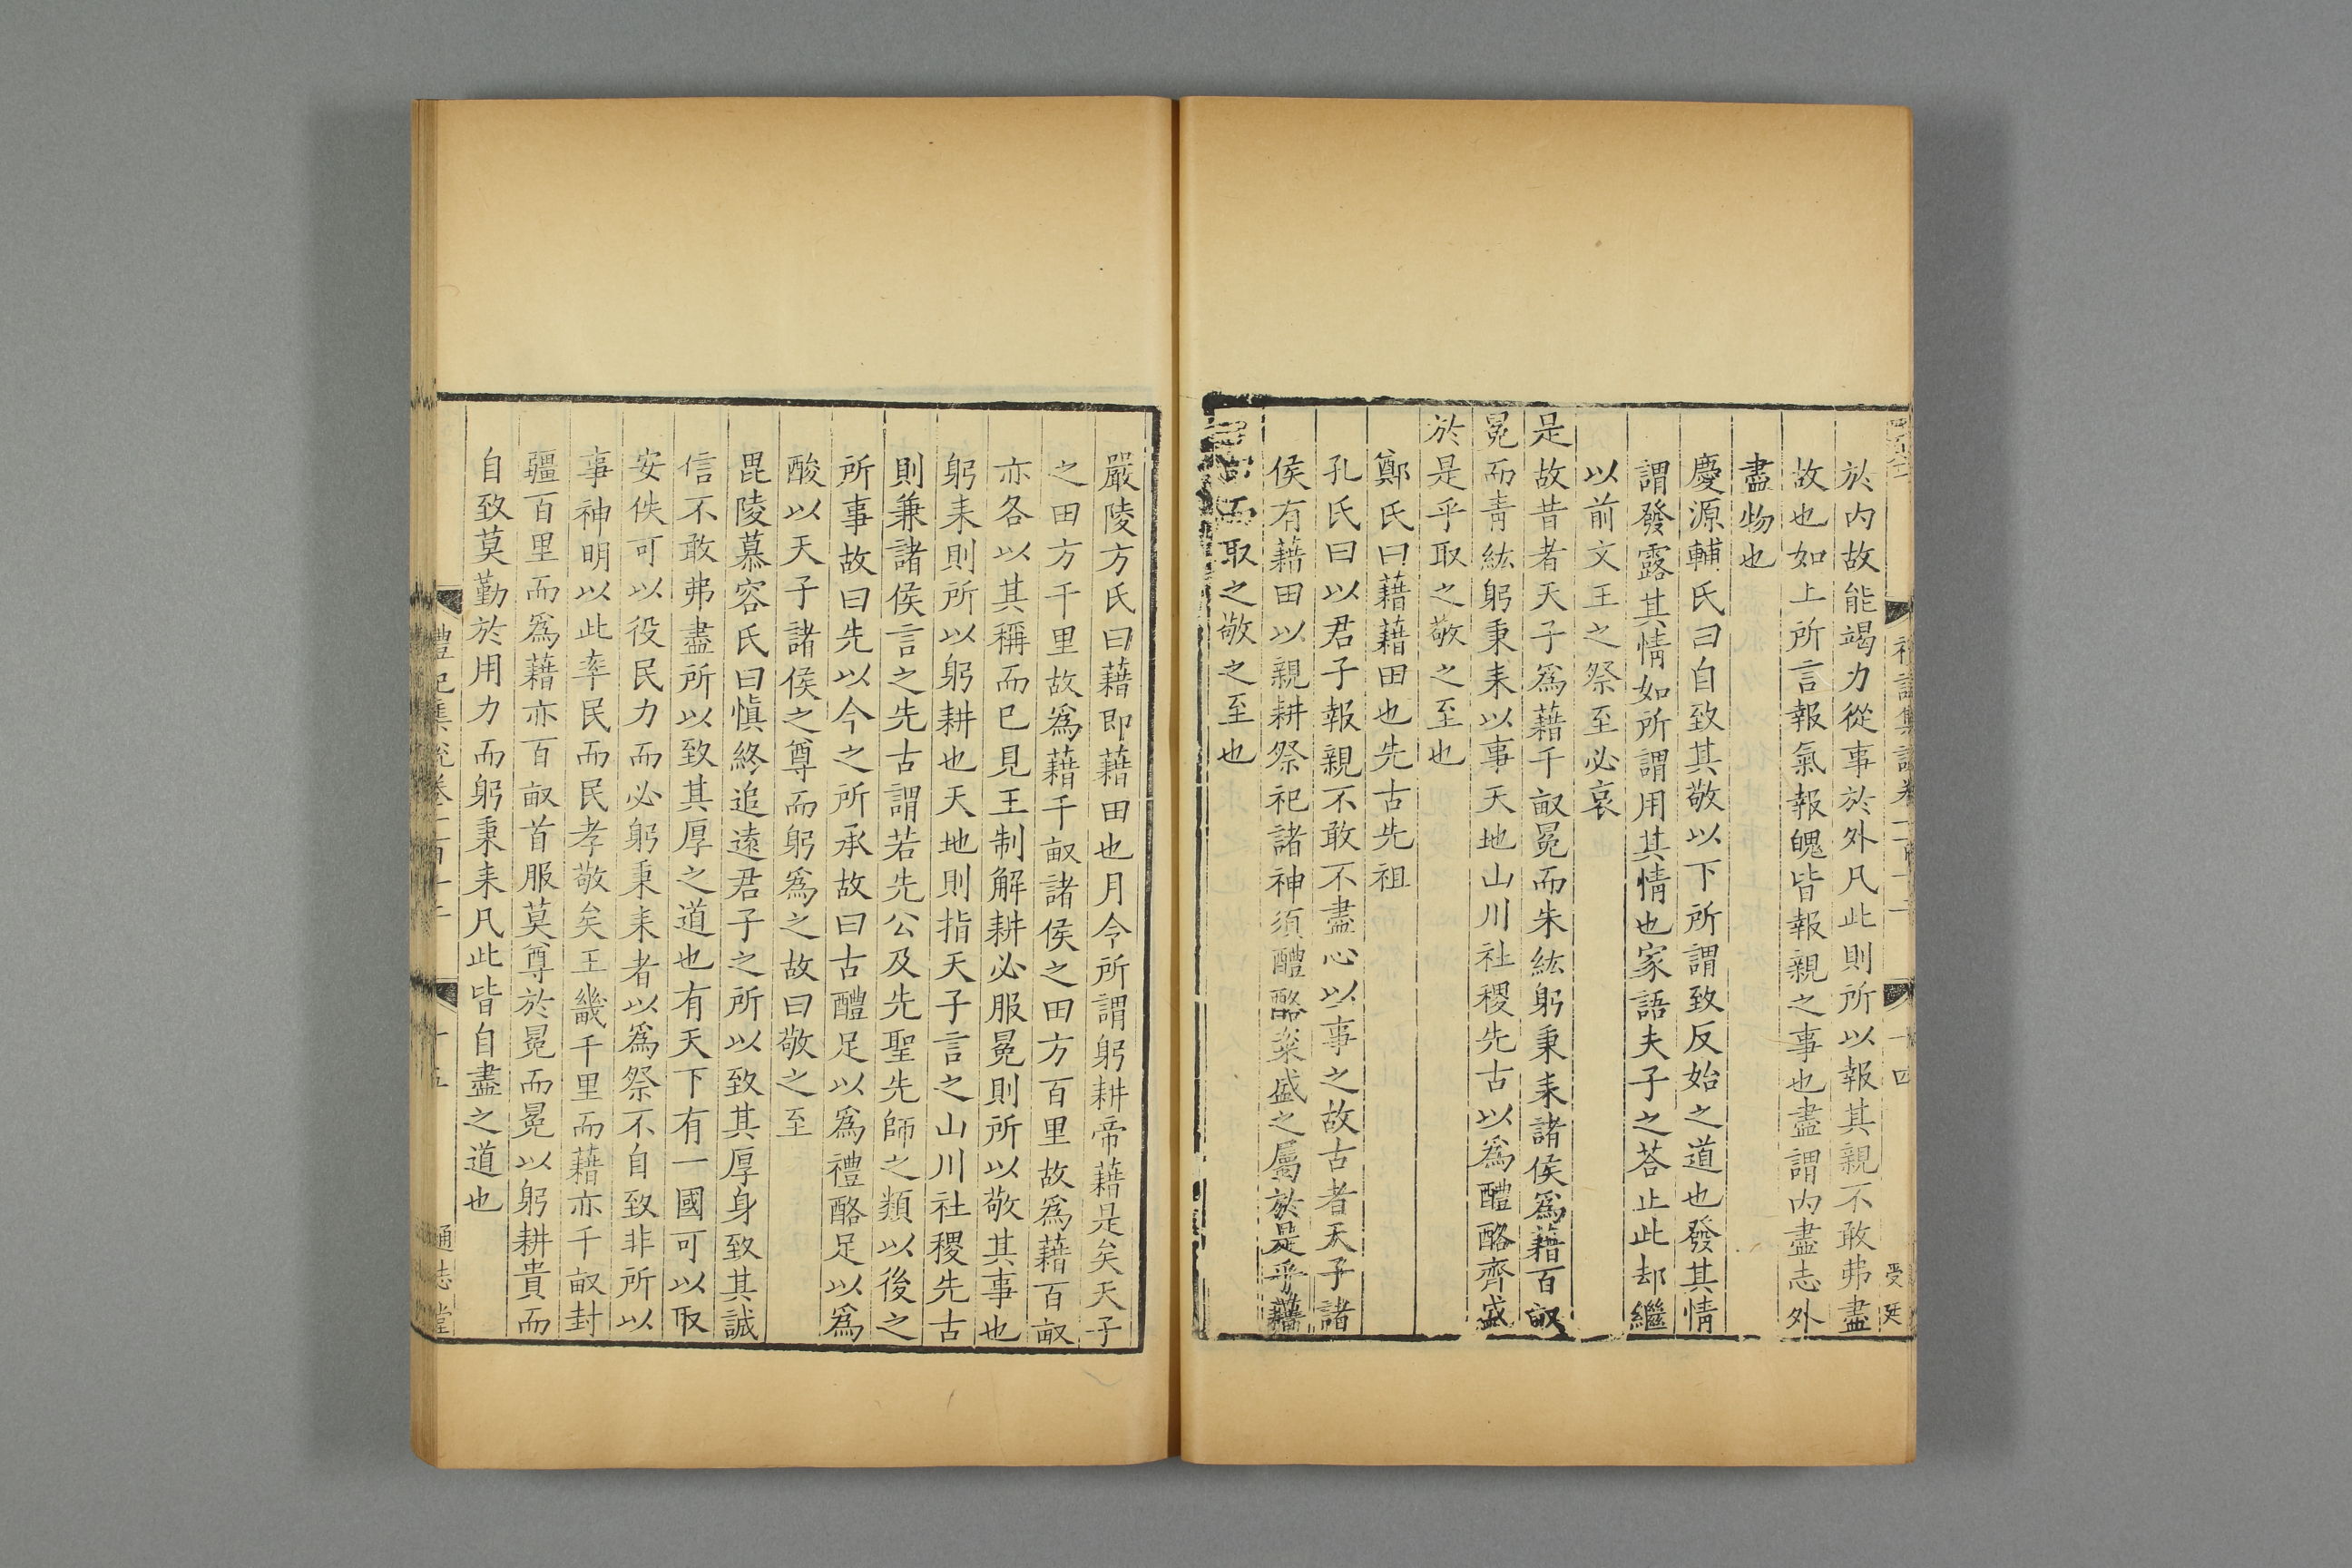 於内故能竭力從事於外凡此則所以報其親不敢弗盡
故也如上所言報氣報魄皆報親之事也盡謂内盡志外
盡物也
慶源輔氏曰自致其敬以下所謂致反始之道也發其情
謂發露其情如所謂用其情也家語夫子之荅止此却繼
以前文王之祭至必哀
是故昔者天子爲藉千畝冕而朱紘躬秉耒諸侯爲藉百畝
冕而靑紘躬秉耒以事天地山川社稷先古以爲醴酪齊盛
於是乎取之敬之至也
鄭氏曰藉藉田也先古先祖
孔氏曰以君子報親不敢不盡心以事之故古者天子諸
侯有藉田以親耕祭祀諸神須醴酪粢盛之屬於是乎藉
而取之敬之至也
嚴陵方氏曰藉即藉田也月令所謂躬耕帝藉是矣天子
之田方千里故爲藉千畝諸侯之田方百里故爲藉百畝
亦各以其稱而已見王制解耕必服冕則所以敬其事也
躬耒則所以躬耕也天地則指天子言之山川社稷先古
則兼諸侯言之先古謂若先公及先聖先師之類以後之
所事故曰先以今之所承故曰古醴足以爲禮酪足以爲
酸以天子諸侯之尊而躬爲之故曰敬之至
毘陵慕容氏曰愼終追遠君子之所以致其厚身致其誠
信不敢弗盡所以致其厚之道也有天下有一國可以取
安佚可以役民力而必躬秉耒者以爲祭不自致非所以
事神明以此率民而民孝敬矣王畿千里而藉亦千畝封
疆百里而爲藉亦百畝首服莫尊於冕而冕以躬耕貴而
自致莫勤於用力而躬秉耒凡此皆自盡之道也
禮記集說卷一百十二
十五
通志堂